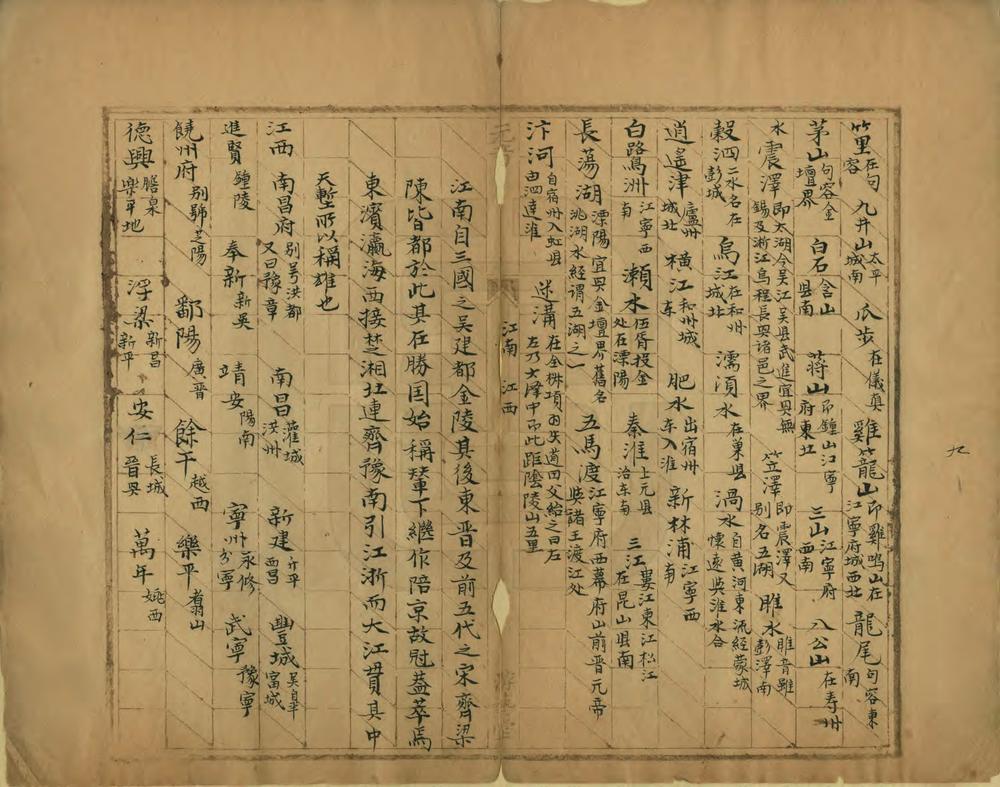 竺里在句容 九井山太平城南 瓜步在儀真 雞籠山即雞鳴山在江寧府城西北 龍尾句容東南
茅山句容金壇界 白石含山县南 蔣山即鍾山江寧府東北 三山江寧府西南 八公山在寿州
水 震澤即太湖今吴江吴县武進宜興無錫及浙江烏程長興諸邑之界 笠澤即震澤又別名五湖 睢水睢音雖彭澤南
穀泗二水名在彭城 烏江在和州城北 濡湏水在巢县 渦水自黄河東流経蒙城懷遠英淮水合
逍遙津廬州城北 横江和州城東 肥水出宿州东入淮 新林浦江寧西南
白鷺洲江寧西南 瀬水伍胥投金处在溧陽 秦淮上元县治东南 三江婁江東江松江在昆山县南
長蕩湖溧陽宜興金壇界舊名洮湖水経謂五湖之一 五馬渡江寧府西幕府山前晋元帝與諸王渡江处
汴河自宿州入虹县由泗達淮 迷溝在全椒項羽失道田父紿之曰左左乃大澤中即此距陰陵山五里
江南 江西
江南自三國之吴建都金陵其後東晋及前五代之宋齊梁
陳皆都於此其在勝国始稱輦下繼作陪京故冠蓋萃焉
東濱瀛海西接楚湘北連齊豫南引江浙而大江貫其中
天塹所以稱雄也
江西 南昌府別号洪都又曰豫章 南昌灌城洪州 新建西昌 豐城吴皐富城
進賢鐘陵 奉新新吴 靖安陽南 寧州永修分寧 武寧豫寧
饒州府別號芝陽 鄱陽廣晋 餘干越西 樂平翥山
德興膳泉樂平地 浮梁新昌新平 安仁長城晋興 萬年姚西
九